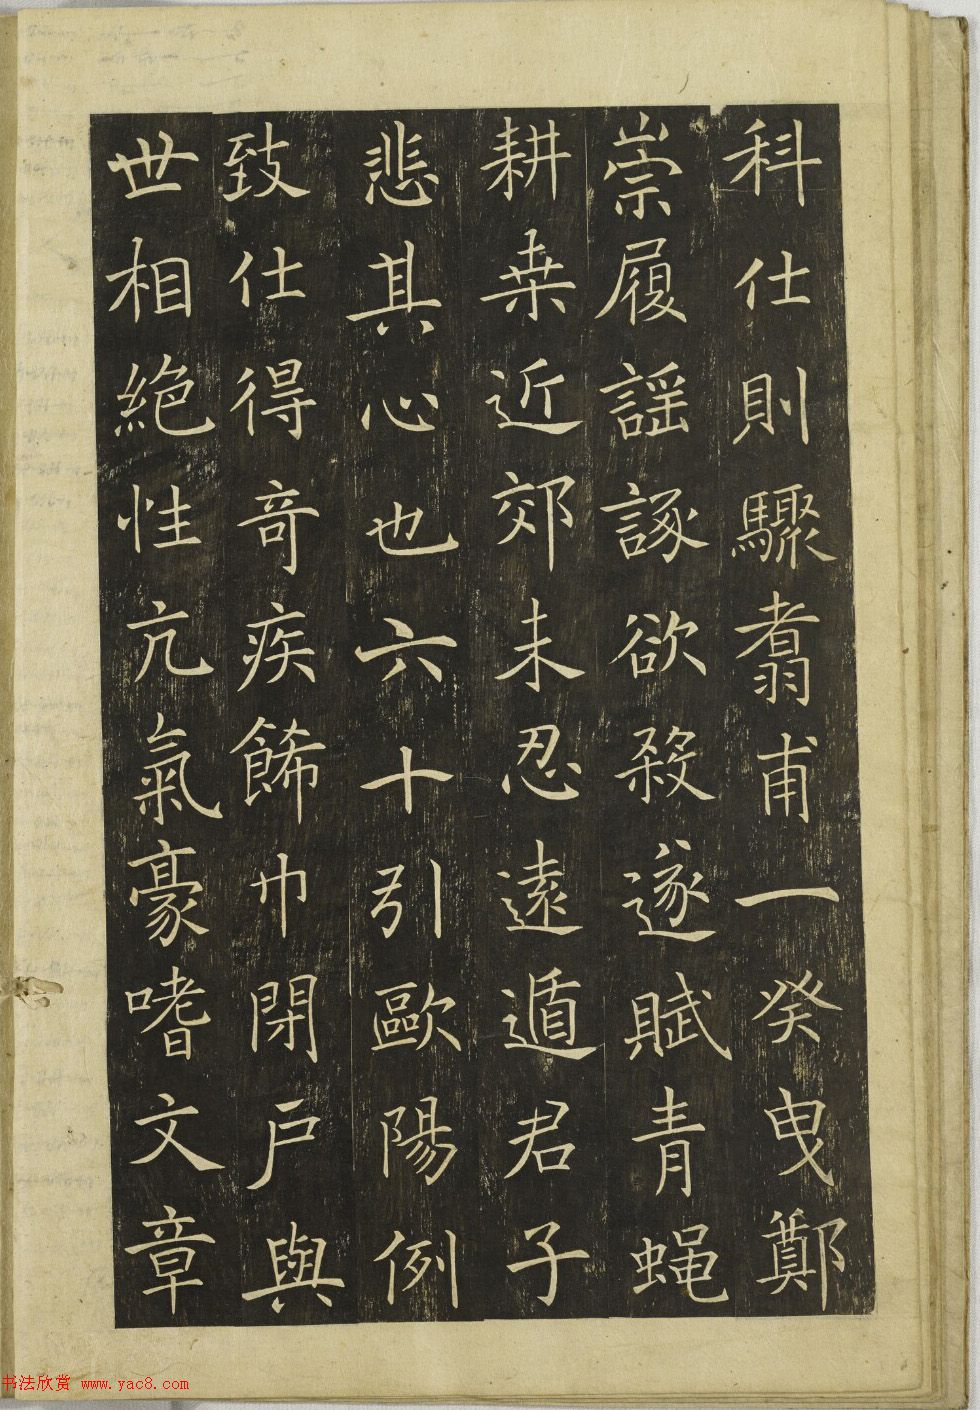 科仕則驟翥甫一癸曳鄭
崇履謡諑欲殺遂賦青蝇
耕桒近郊未忍遠遁君子
悲其心也六十引歐陽例
致仕得奇疾餙巾閉戶與
世相絶性亢氣豪嗜文章
书法欣赏 www.yac8.com